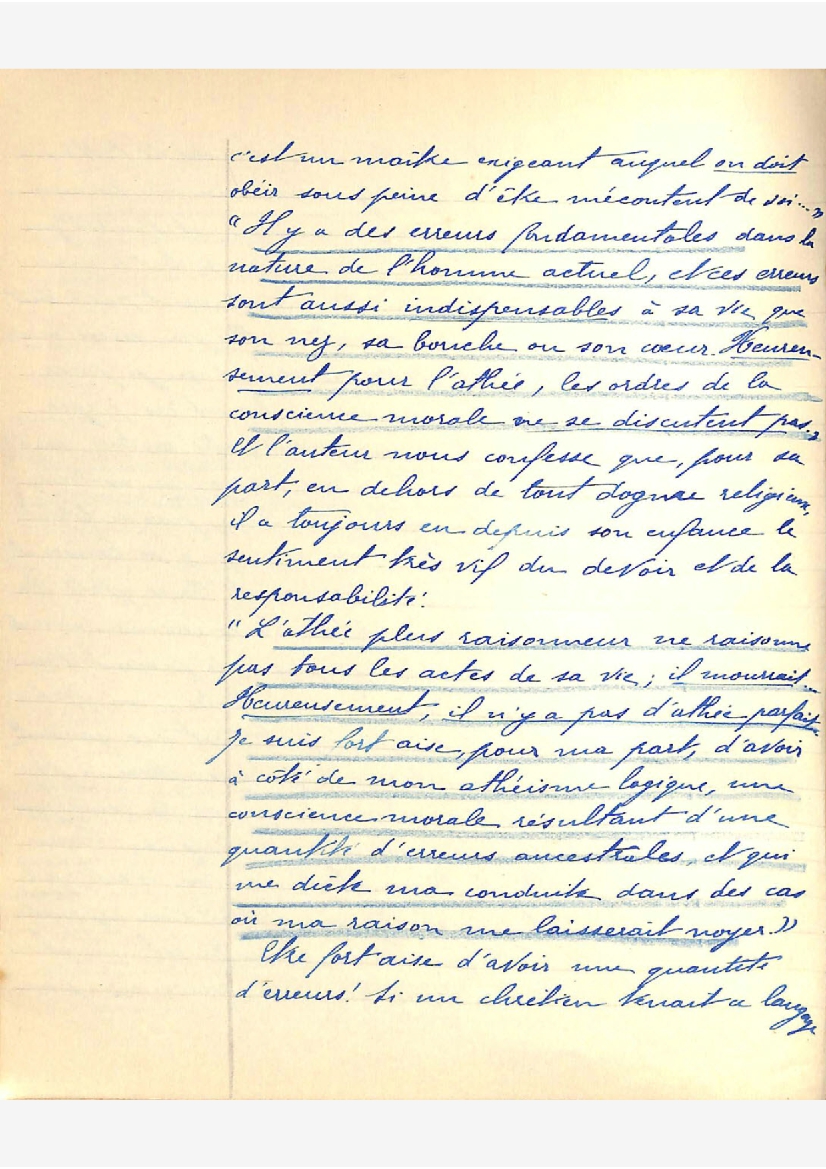 c'est un maître exigeant auquel on doit
obéir sous peine d'être mécontent de soi..."
"Il y a des erreurs fondamentales dans la
nature de l'homme actuel, et ces erreurs
sont aussi indispensables à sa vie que
son nez, sa bouche ou son cœur. Heureu-
sement pour l'athée, les ordres de la
conscience morale ne se discutent pas."
Et l'auteur nous confesse que, pour sa
part, en dehors de tout dogme religieux,
il a toujours eu depuis son enfance le
sentiment très vif du devoir et de la
responsabilité.
"L'athée plus raisonneur ne raisonne
pas tous les actes de sa vie ; il mourrait...
Heureusement, il n'y a pas d'athée parfait.
Je suis fort aise, pour ma part, d'avoir
à côté de mon athéisme logique, une
conscience morale résultant d'une
quantité d'erreurs ancestrales, et qui
me dicte ma conduite dans des cas
où ma raison me laisserait noyer."
Etre fort aise d'avoir une quantité
d'erreurs! Si un chrétien tenait ce langage